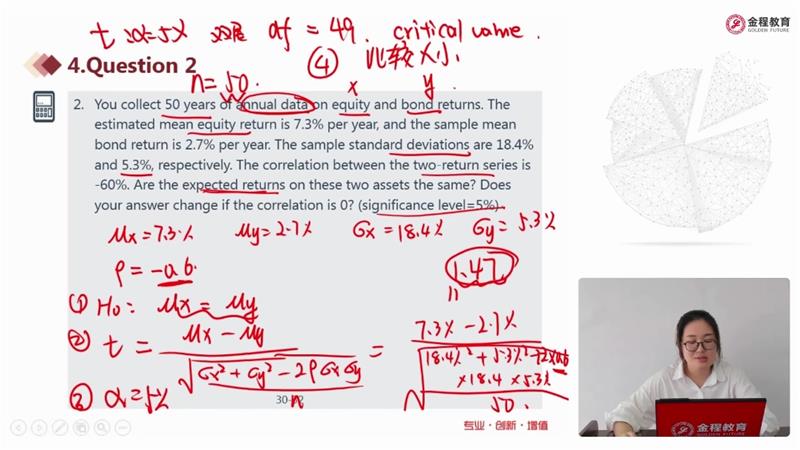 t α=5% 双尾 df = 49. critical value.
④ 比较大小.
金程教育
GOLDEN FUTURE
4.Question 2
n=50. x y.
2. You collect 50 years of annual data on equity and bond returns. The
estimated mean equity return is 7.3% per year, and the sample mean
bond return is 2.7% per year. The sample standard deviations are 18.4%
and 5.3%, respectively. The correlation between the two-return series is
-60%. Are the expected returns on these two assets the same? Does
your answer change if the correlation is 0? (significance level=5%)
μx=7.3% μy=2.7% σx=18.4% σy=5.3%
ρ = -0.6.
1.47
① H0: μx = μy
② t = μx - μy = 7.3% - 2.7%
√ σx² + σy² - 2ρσxσy √ 18.4%² + 5.3%² + 2×0.6
×18.4 × 5.3%
n 50.
③ α=5%
专业·创新·增值
金程教育
GOLDEN FUTURE